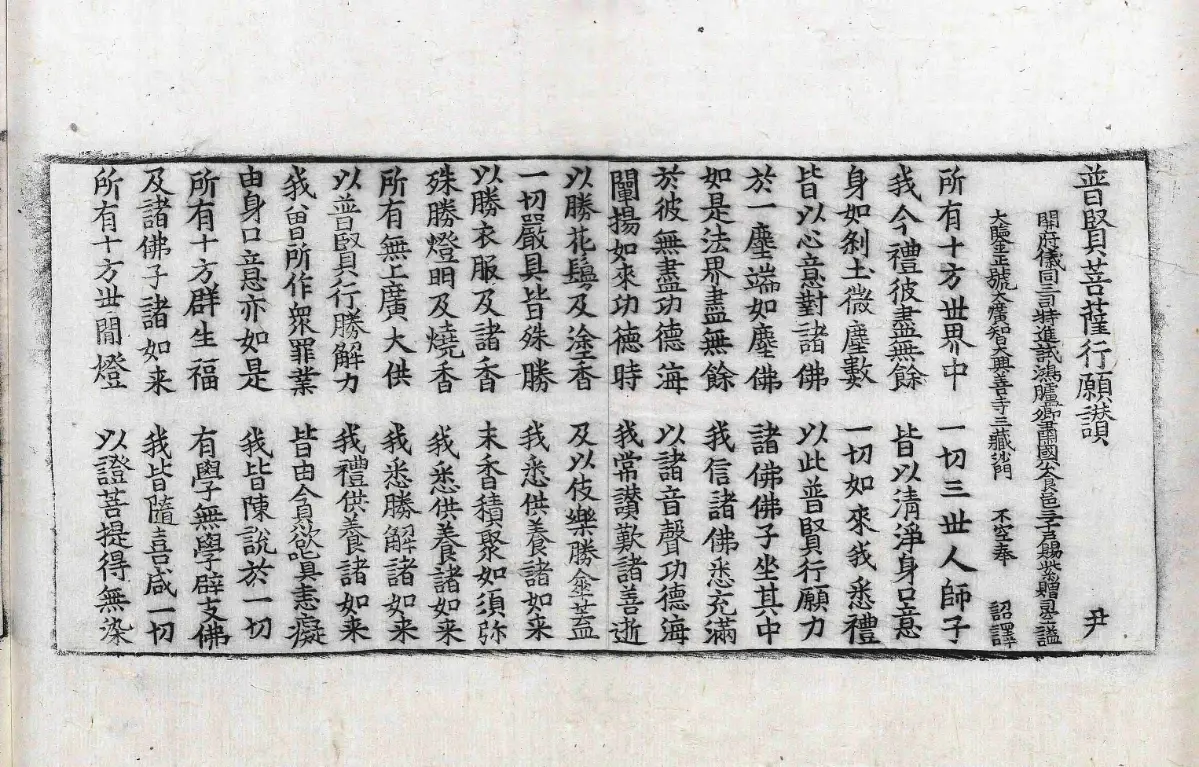 普賢菩薩行願讃 尹
開府儀同三司特進試鴻臚卿肅國公食邑三千戶賜紫贈司空謚
大鑒正號大廣智大興善寺三藏沙門 不空奉 詔譯
所有十方世界中 一切三世人師子
我今禮彼盡無餘 皆以清淨身口意
身如剎土微塵數 一切如來我悉禮
皆以心意對諸佛 以此普賢行願力
於一塵端如塵佛 諸佛佛子坐其中
如是法界盡無餘 我信諸佛悉充滿
於彼無盡功德海 以諸音聲功德海
闡揚如來功德時 我常讃歎諸善逝
以勝花鬘及塗香 及以伎樂勝傘蓋
一切嚴具皆殊勝 我悉供養諸如來
以勝衣服及諸香 末香積聚如須弥
殊勝燈明及燒香 我悉供養諸如來
所有無上廣大供 我悉勝解諸如來
以普賢行勝解力 我禮供養諸如來
我曾所作衆罪業 皆由貪欲瞋恚癡
由身口意亦如是 我皆陳說於一切
所有十方群生福 有學無學辟支佛
及諸佛子諸如來 我皆隨喜咸一切
所有十方世間燈 以證菩提得無染